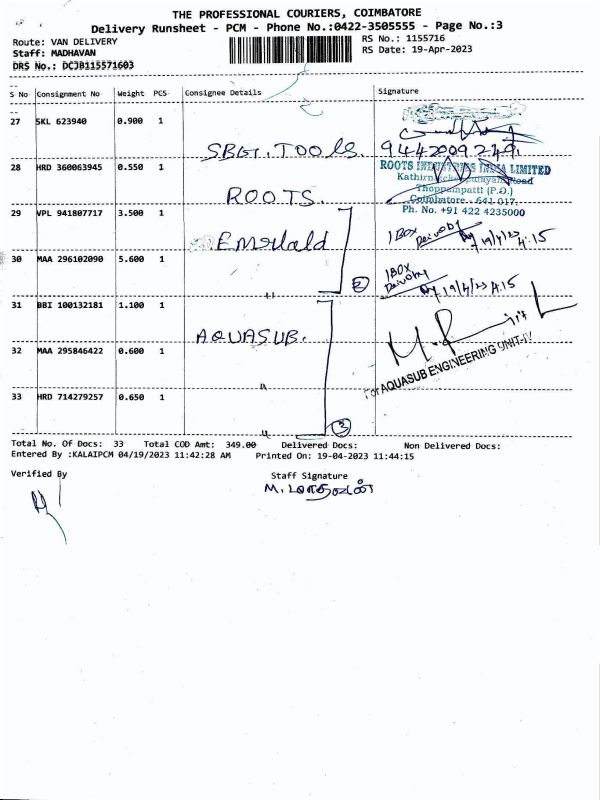 THE PROFESSIONAL COURIERS, COIMBATORE
Delivery Runsheet - PCM - Phone No.:0422-3505555 - Page No.:3
Route: VAN DELIVERY
RS No.: 1155716
Staff: MADHAVAN
RS Date: 19-Apr-2023
DRS No.: DCJB115571603
S No Consignment No Weight PCS Consignee Details Signature
27 SKL 623940 0.900 1
SBGT. TOOLS. 9442009249
28 HRD 360063945 0.550 1
ROOTS INDUSTRIES INDIA LIMITED
Thoppampatti (P.O.)
ROOTS. Coimbatore - 641 017.
29 VPL 941807717 3.500 1 Ph. No. +91 422 4235000
Emerald 1 Box Delivery 19/4/23 4:15
30 MAA 296102090 5.600 1
1 BOX Delivery 19/4/23 4:15
2
31 BBI 100132181 1.100 1
AQUASUB.
32 MAA 295846422 0.600 1
For AQUASUB ENGINEERING UNIT-IV
33 HRD 714279257 0.650 1
3
Total No. Of Docs: 33 Total COD Amt: 349.00 Delivered Docs: Non Delivered Docs:
Entered By :KALAIPCM 04/19/2023 11:42:28 AM Printed On: 19-04-2023 11:44:15
Verified By Staff Signature
M. மாதவன்